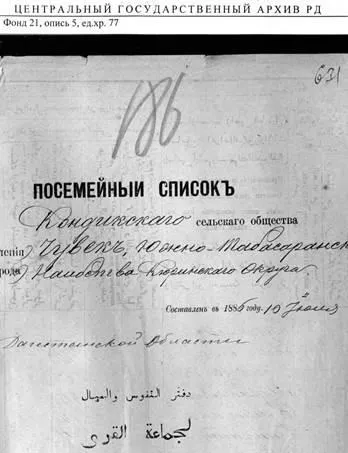 ЦЕНТРАЛЬНЫЙ ГОСУДАРСТВЕННЫЙ АРХИВ РД
Фонд 21, опись 5, ед.хр. 77
631
186
ПОСЕМЕЙНЫЙ СПИСОКЪ
Кондикскаго сельскаго общества
ленія) Чувекъ, Южно-Табасаранск
рода) Наибства Кюринскаго Округа.
Составленъ въ 1886 году. 10 Іюня
Дагестанской Области
دفتر النفوس والعيال
لجماعة القرى